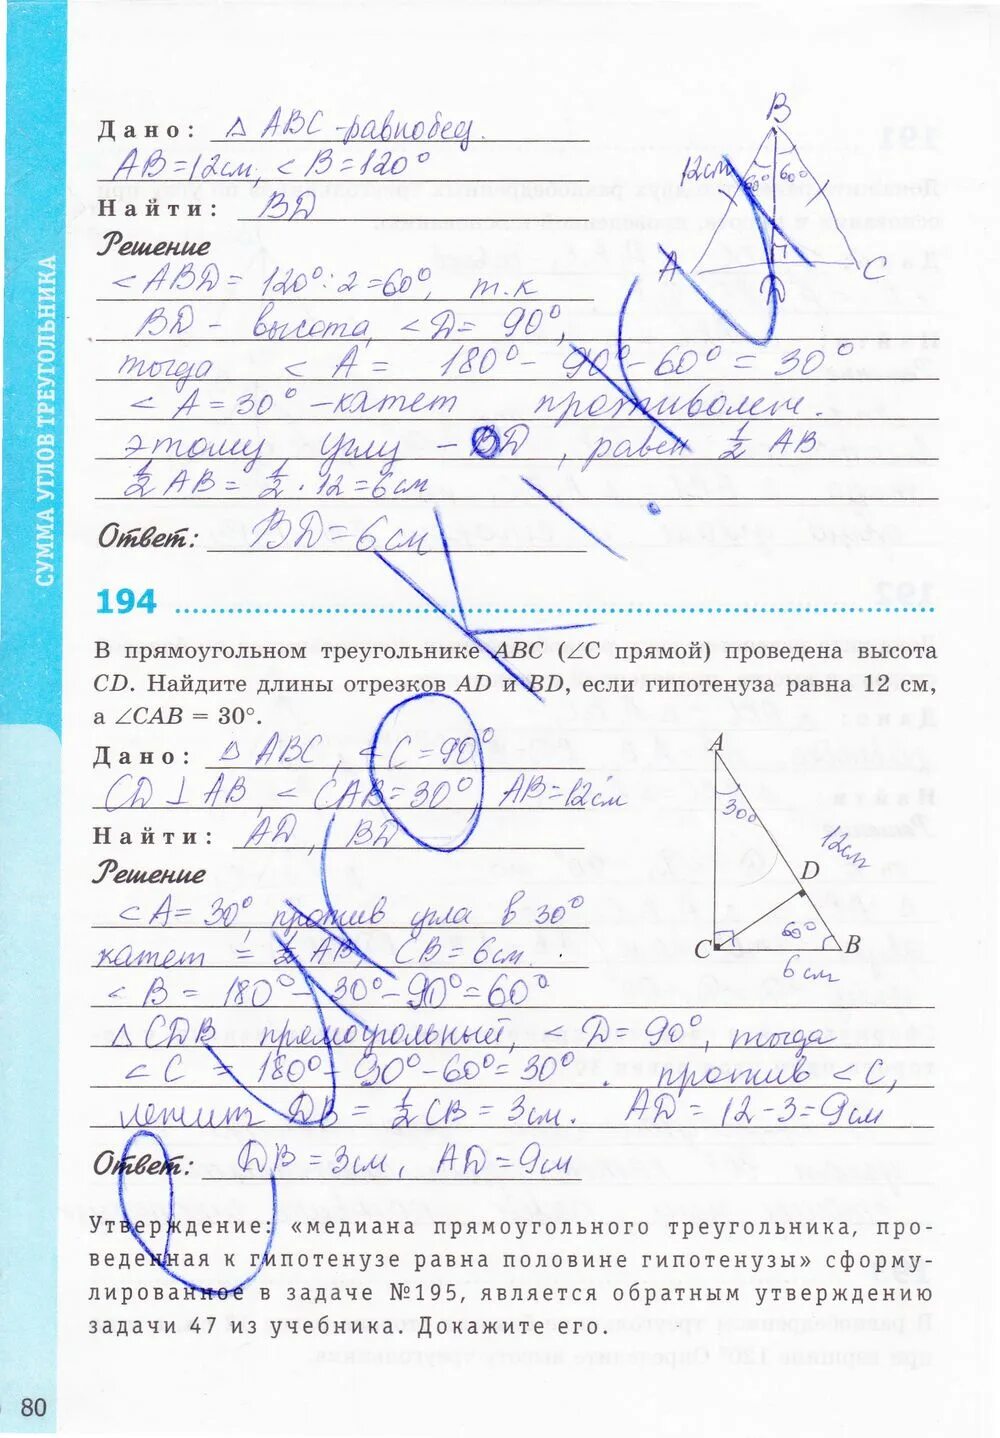 СУММА УГЛОВ ТРЕУГОЛЬНИКА
Дано: △ ABC -равнобед.
AB=12см, < B=120°
Найти: BD
Решение
< ABD= 120°:2=60°, т.к
BD - высота, < D= 90°,
тогда < A = 180°- 90°-60°=30°
< A=30° -катет противолеж.
этому углу -BD, равен ½ AB
½ AB= ½ · 12=6см
Ответ: BD=6см
B
12см
60° 60°
A
C
D
194
В прямоугольном треугольнике ABC (∠C прямой) проведена высота
CD. Найдите длины отрезков AD и BD, если гипотенуза равна 12 см,
а ∠CAB = 30°.
Дано: △ ABC, < C=90°
CD ⊥ AB, < CAB=30°, AB=12см
Найти: AD, BD
Решение
< A= 30°, против угла в 30°
катет = ½ AB, CB=6см.
< B= 180°-30°-90°=60°
△ CDB прямоугольный, < D=90°, тогда
< C = 180°-90°-60°=30°. против < C,
лежит DB = ½ CB = 3см. AD = 12-3=9см
Ответ: DB=3см, AD=9см
A
30°
12см
D
60°
C
B
6см
Утверждение: «медиана прямоугольного треугольника, про-
веденная к гипотенузе равна половине гипотенузы» сформу-
лированное в задаче №195, является обратным утверждению
задачи 47 из учебника. Докажите его.
80